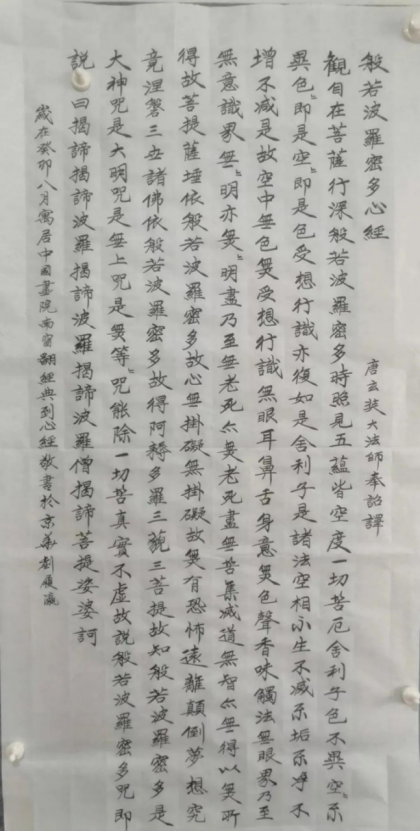 般若波羅密多心經
唐玄奘大法師奉詔譯
觀自在菩薩行深般若波羅密多時照見五蘊皆空度一切苦厄舍利子色不異空〻不
異色〻即是空〻即是色受想行識亦復如是舍利子是諸法空相不生不滅不垢不淨不
增不减是故空中無色無受想行識無眼耳鼻舌身意無色聲香味觸法無眼界乃至
無意識界無〻明亦無〻明盡乃至無老死亦無老死盡無苦集滅道無智亦無得以無所
得故菩提薩埵依般若波羅密多故心無掛礙無掛礙故無有恐怖遠離顛倒夢想究
竟涅槃三世諸佛依般若波羅密多故得阿耨多羅三藐三菩提故知般若波羅密多是
大神咒是大明咒是無上咒是無等〻咒能除一切苦真實不虛故説般若波羅密多咒即
説曰揭諦揭諦波羅揭諦波羅揭諦波羅僧揭諦菩提娑婆訶
歲在癸卯八月寓居中國畫院南窗翻經典到心經敬書於京華劉